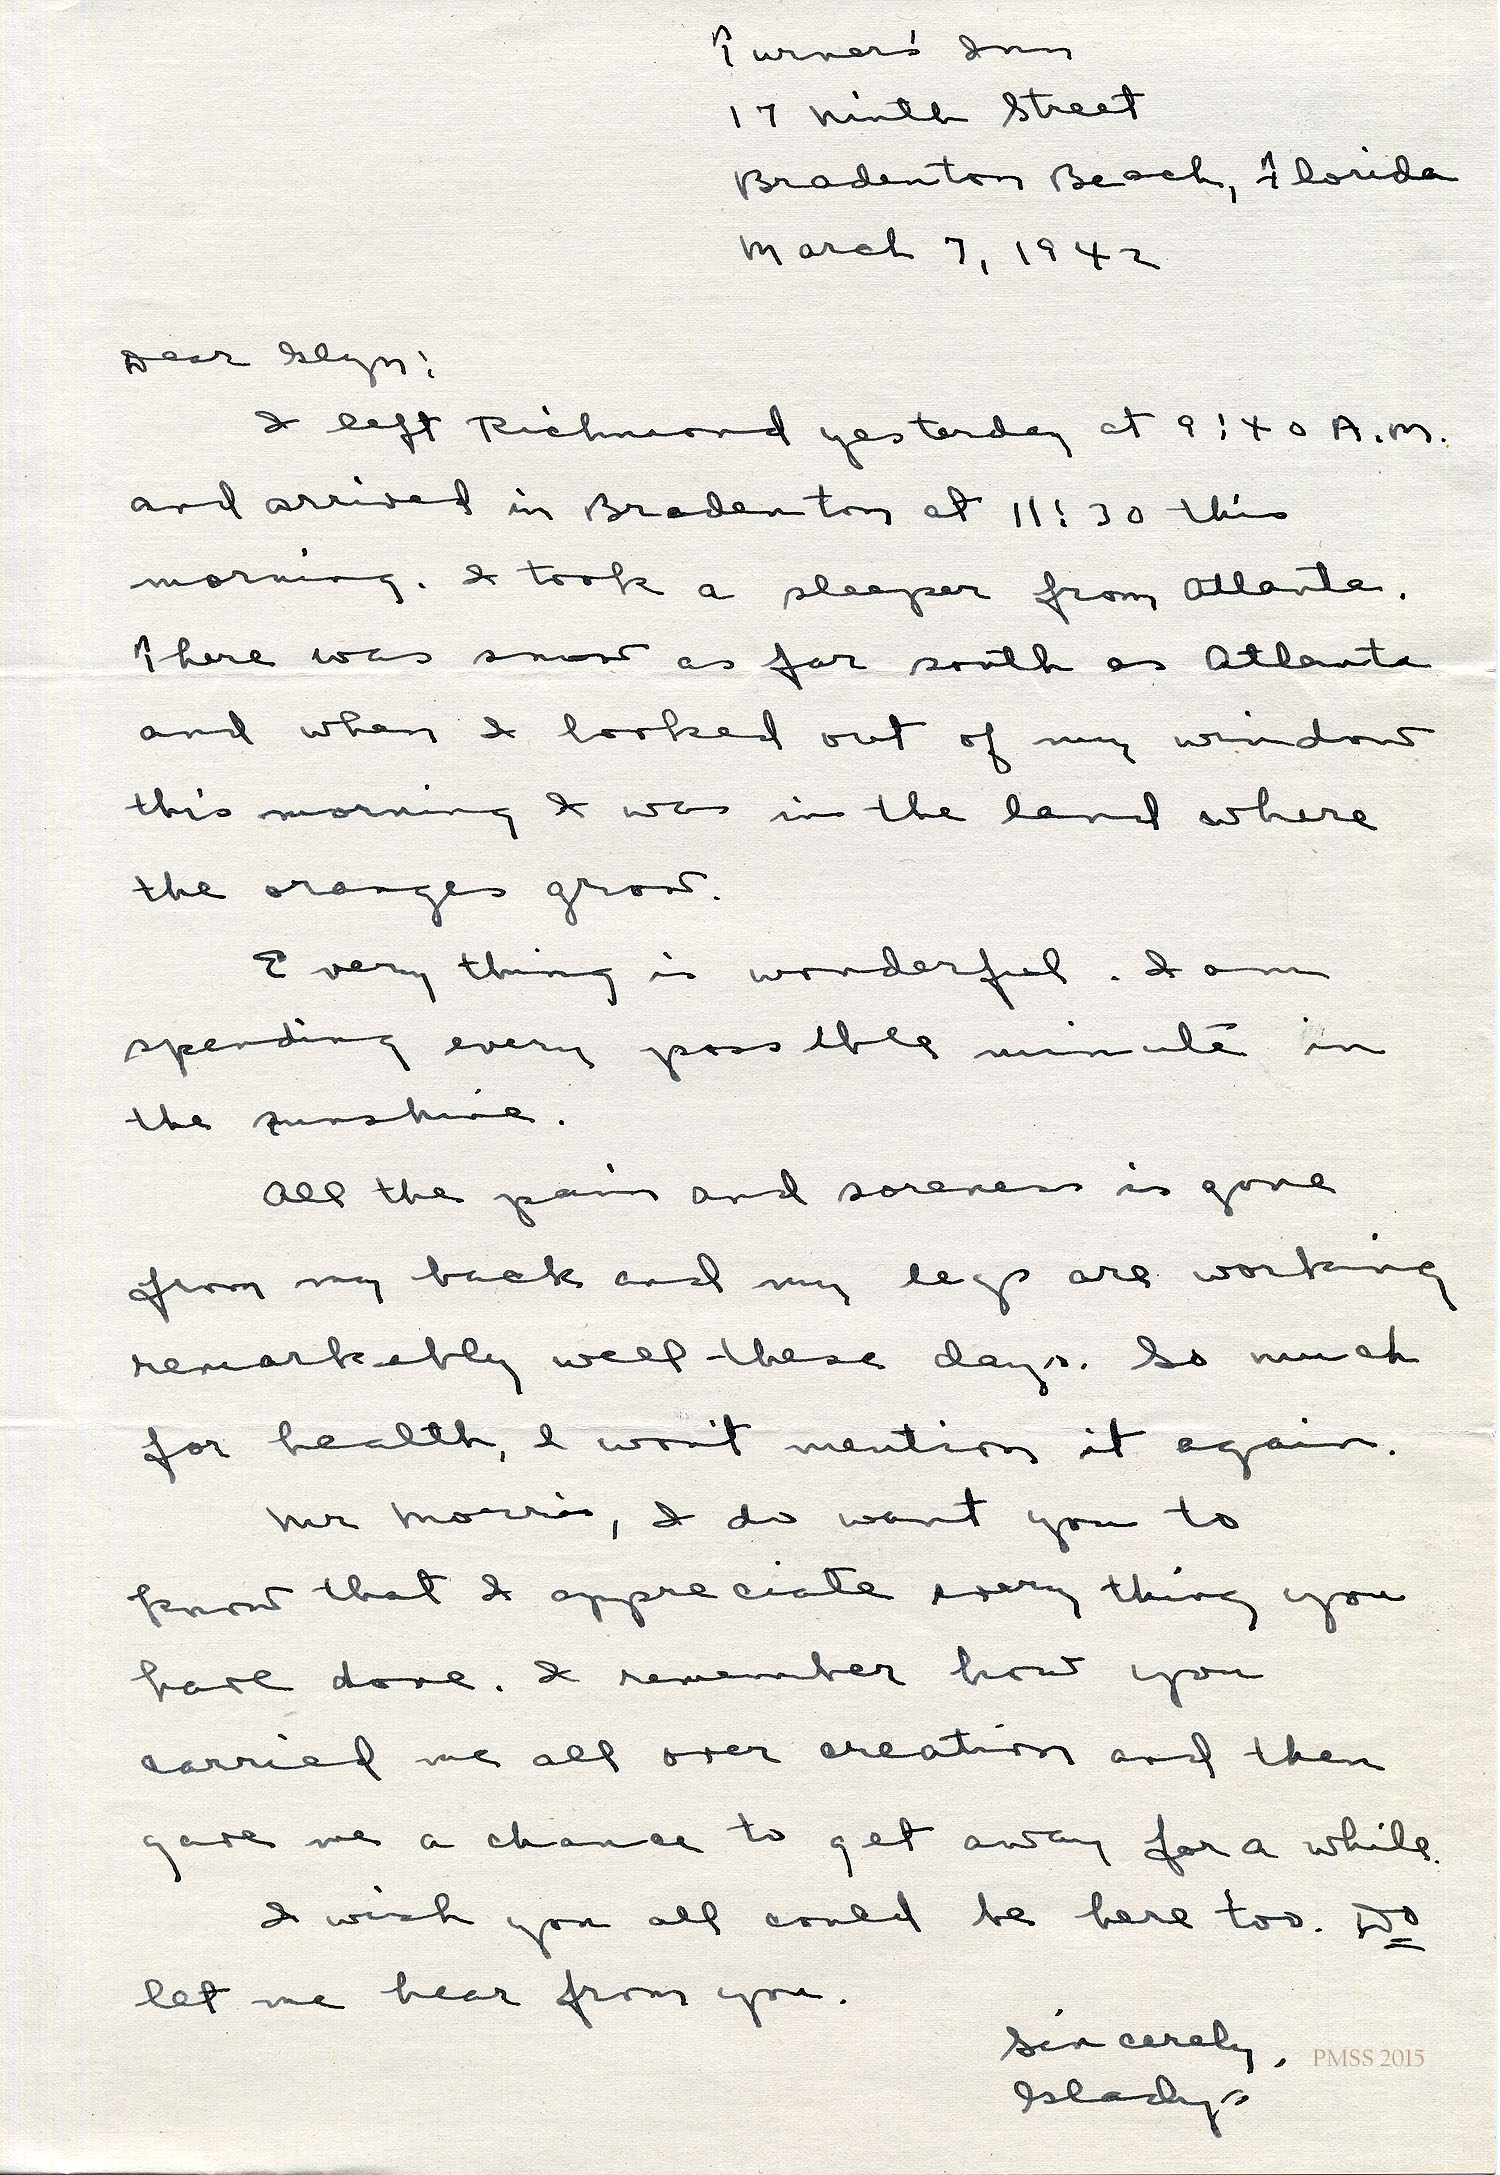 Turner's Inn
17 Ninth Street
Bradenton Beach, Florida
March 7, 1942
Dear Glyn:
I left Richmond yesterday at 9:40 A.M.
and arrived in Bradenton at 11:30 this
morning. I took a sleeper from Atlanta.
There was snow as far south as Atlanta
and when I looked out of my window
this morning I was in the land where
the oranges grow.
Every thing is wonderful. I am
spending every possible minute in
the sunshine.
All the pain and soreness is gone
from my back and my legs are working
remarkably well these days. So much
for health, I won't mention it again.
Mr Morris, I do want you to
know that I appreciate every thing you
have done. I remember how you
carried me all over creation and then
gave me a chance to get away for a while.
I wish you all could be here too. Do
let me hear from you.
Sincerely,
PMSS 2015
Gladys